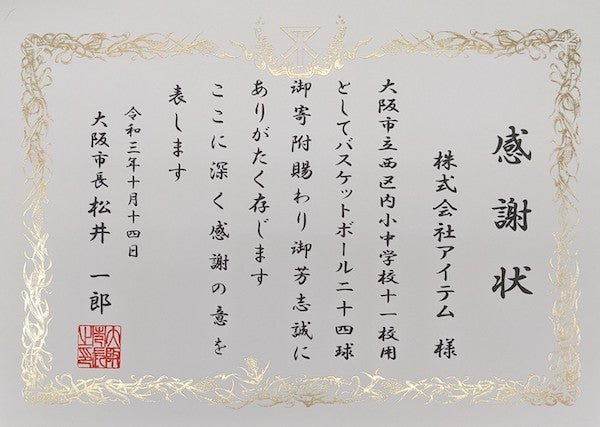 感謝状
株式会社アイテム 様
大阪市立西区内小中学校十一校用
としてバスケットボール二十四球
御寄附賜わり御芳志誠に
ありがたく存じます
ここに深く感謝の意を
表します
令和三年十月十四日
大阪市長 松井 一郎
大阪市長之印